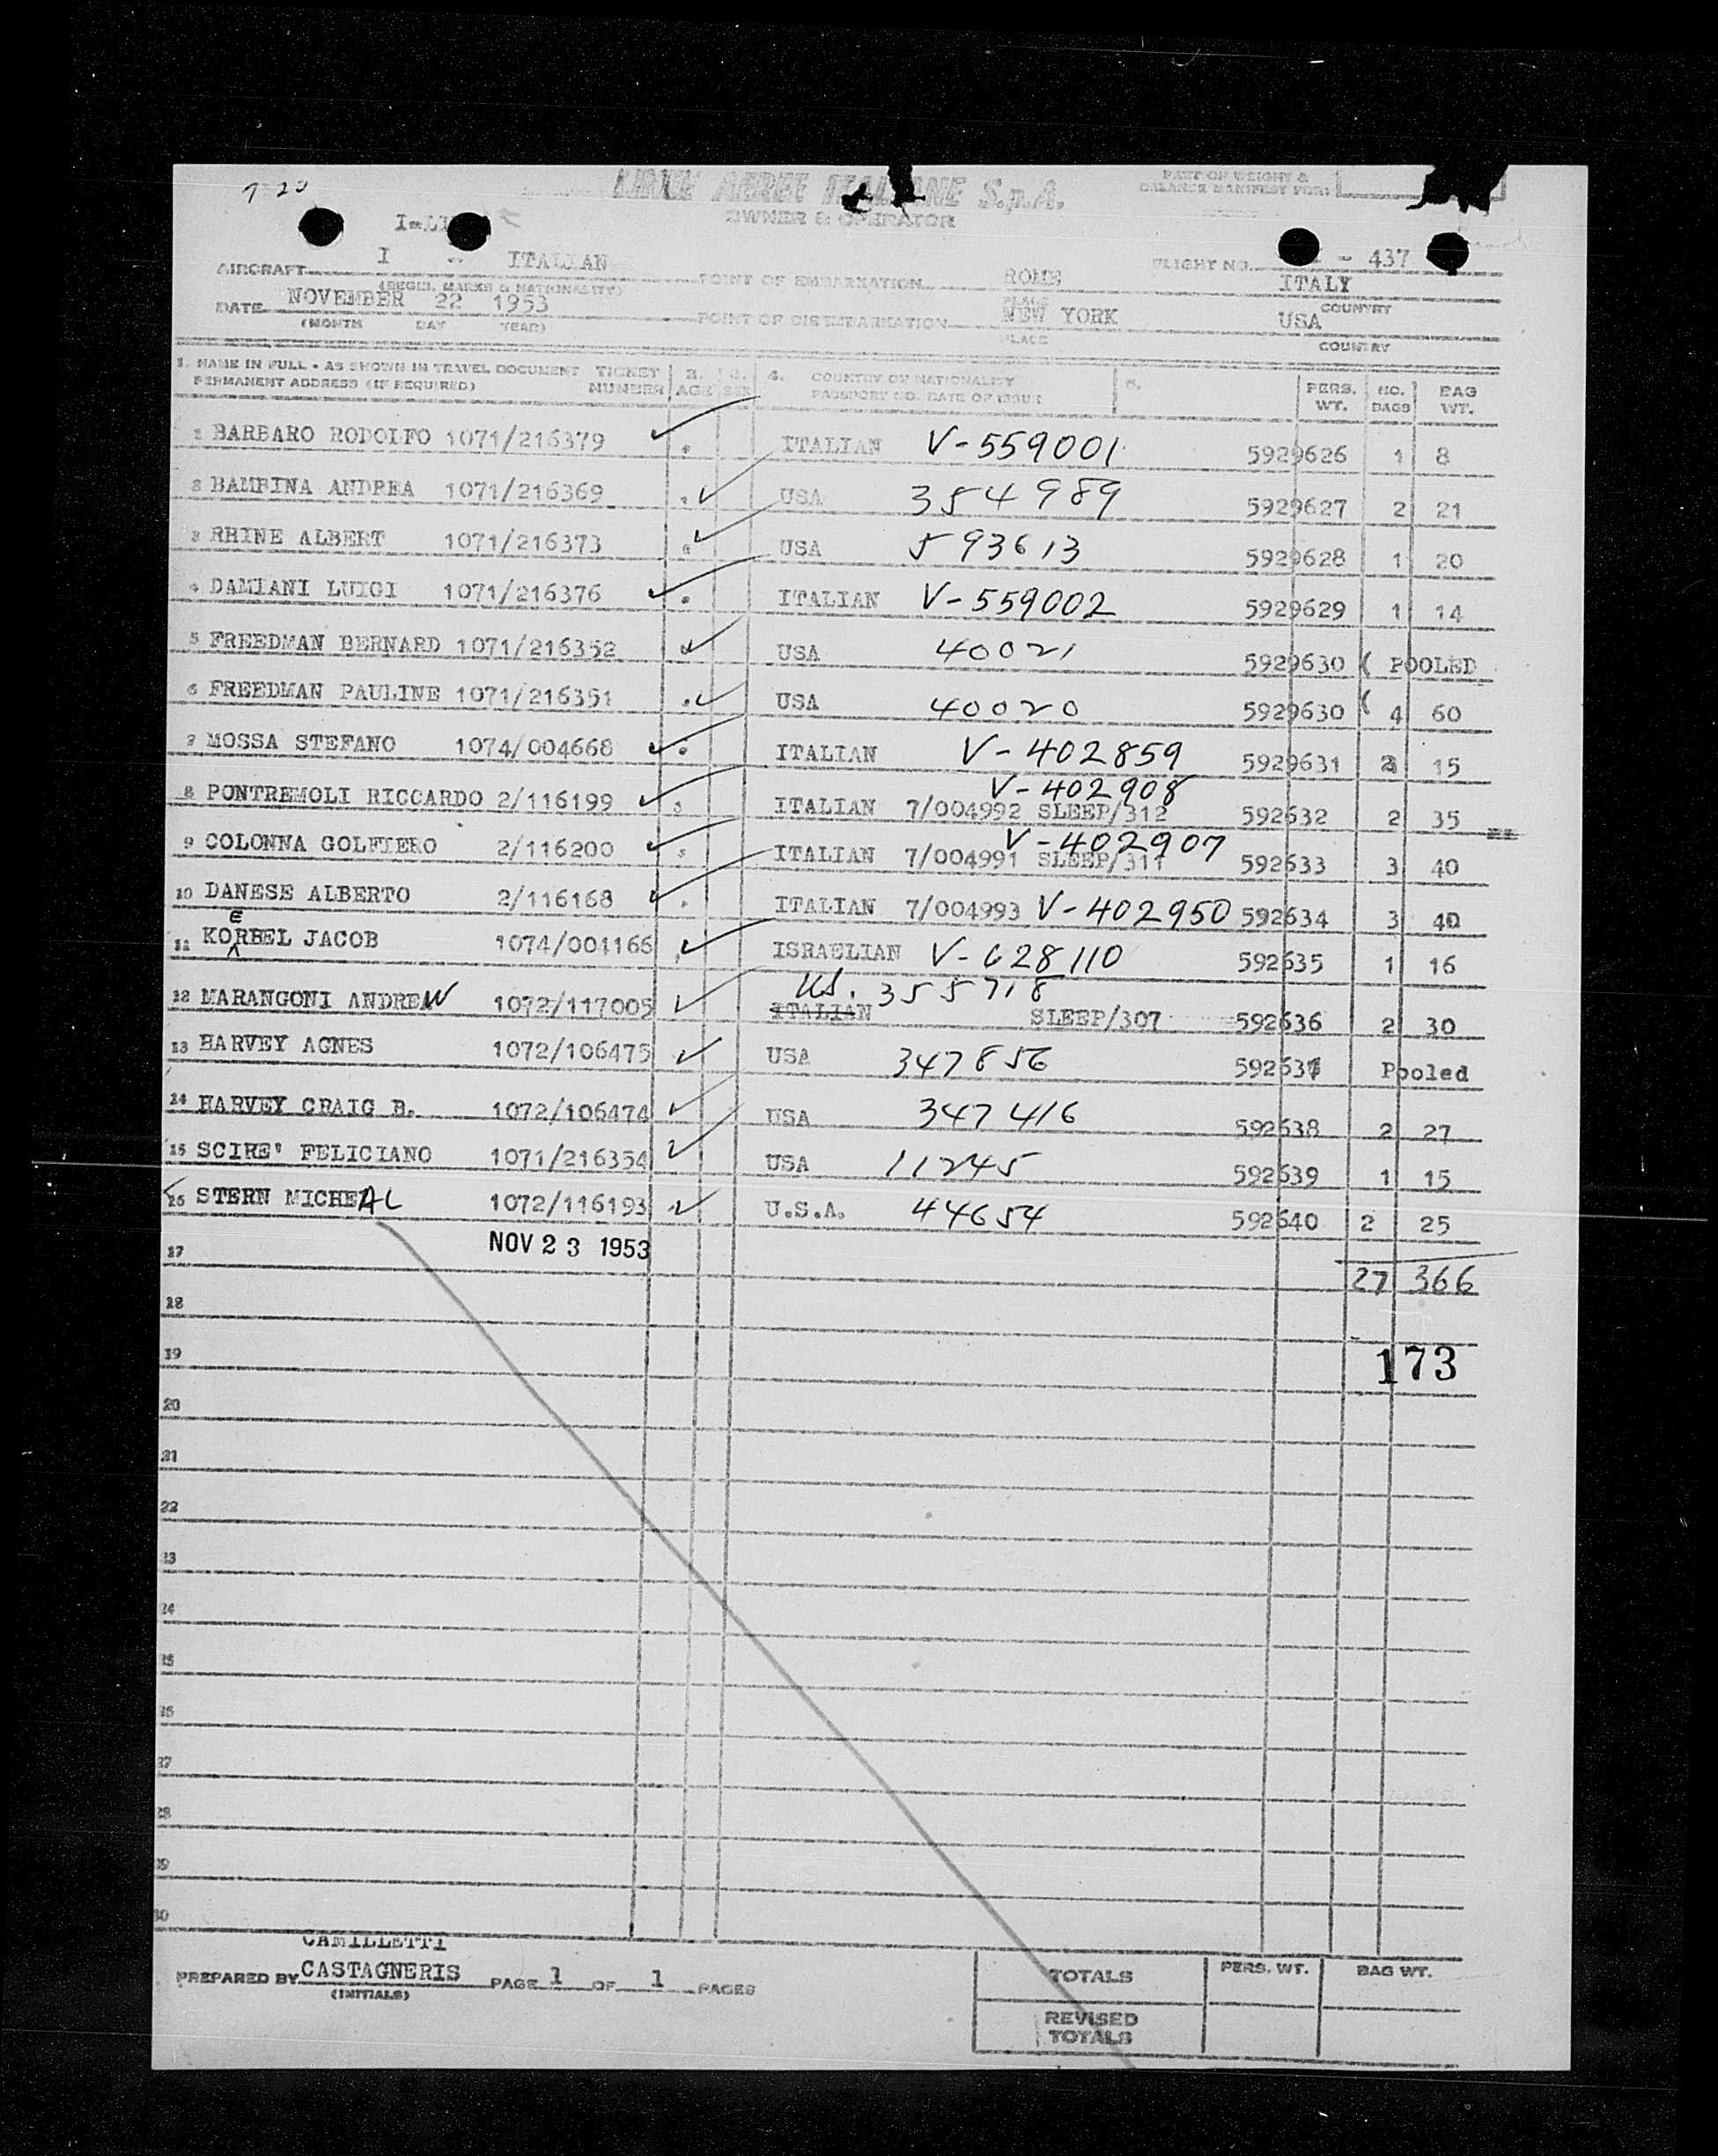 7-20
LINEE AEREE ITALIANE S.p.A.
OWNER & OPERATOR
PART OF WEIGHT &
BALANCE MANIFEST FOR:
I-LI
AIRCRAFT I - ITALIAN POINT OF EMBARKATION ROME ITALY FLIGHT NO. - 437
(REGIS. MARKS & NATIONALITY) PLACE COUNTRY
DATE NOVEMBER 22 1953 POINT OF DISEMBARKATION NEW YORK USA
(MONTH DAY YEAR) PLACE COUNTRY
1. NAME IN FULL - AS SHOWN IN TRAVEL DOCUMENT TICKET 2. 3. 4. COUNTRY OF NATIONALITY 5. PERS. NO. BAG
PERMANENT ADDRESS (IF REQUIRED) NUMBER AGE SEX PASSPORT NO. DATE OF ISSUE WT. BAGS WT.
1 BARBARO RODOLFO 1071/216379 ITALIAN V-559001 5929626 1 8
2 BAMBINA ANDREA 1071/216369 USA 354989 5929627 2 21
3 RHINE ALBERT 1071/216373 USA 593613 5929628 1 20
4 DAMIANI LUIGI 1071/216376 ITALIAN V-559002 5929629 1 14
5 FREEDMAN BERNARD 1071/216352 USA 40021 5929630 ( POOLED
6 FREEDMAN PAULINE 1071/216351 USA 40020 5929630 ( 4 60
7 MOSSA STEFANO 1074/004668 ITALIAN V-402859 5929631 15
V-402908
8 PONTREMOLI RICCARDO 2/116199 ITALIAN 7/004992 SLEEP/312 592632 2 35
V-402907
9 COLONNA GOLFIERO 2/116200 ITALIAN 7/004991 SLEEP/311 592633 3 40
10 DANESE ALBERTO 2/116168 ITALIAN 7/004993 V-402950 592634 3 40
E
11 KORBEL JACOB 1074/004166 ISRAELIAN V-628110 592635 1 16
US. 355718
12 MARANGONI ANDREW 1072/117005 ITALIAN SLEEP/307 592636 2 30
13 HARVEY AGNES 1072/106475 USA 347856 592637 Pooled
14 HARVEY CRAIG B. 1072/106474 USA 347416 592638 2 27
15 SCIRE' FELICIANO 1071/216354 USA 11245 592639 1 15
16 STERN MICHEAL 1072/116193 U.S.A. 44654 592640 2 25
17 NOV 23 1953
27 366
18
19 173
20
21
22
23
24
25
26
27
28
29
30
CAMILLETTI
PREPARED BY CASTAGNERIS PAGE 1 OF 1 PAGES
(INITIALS)
TOTALS PERS. WT. BAG WT.
REVISED
TOTALS